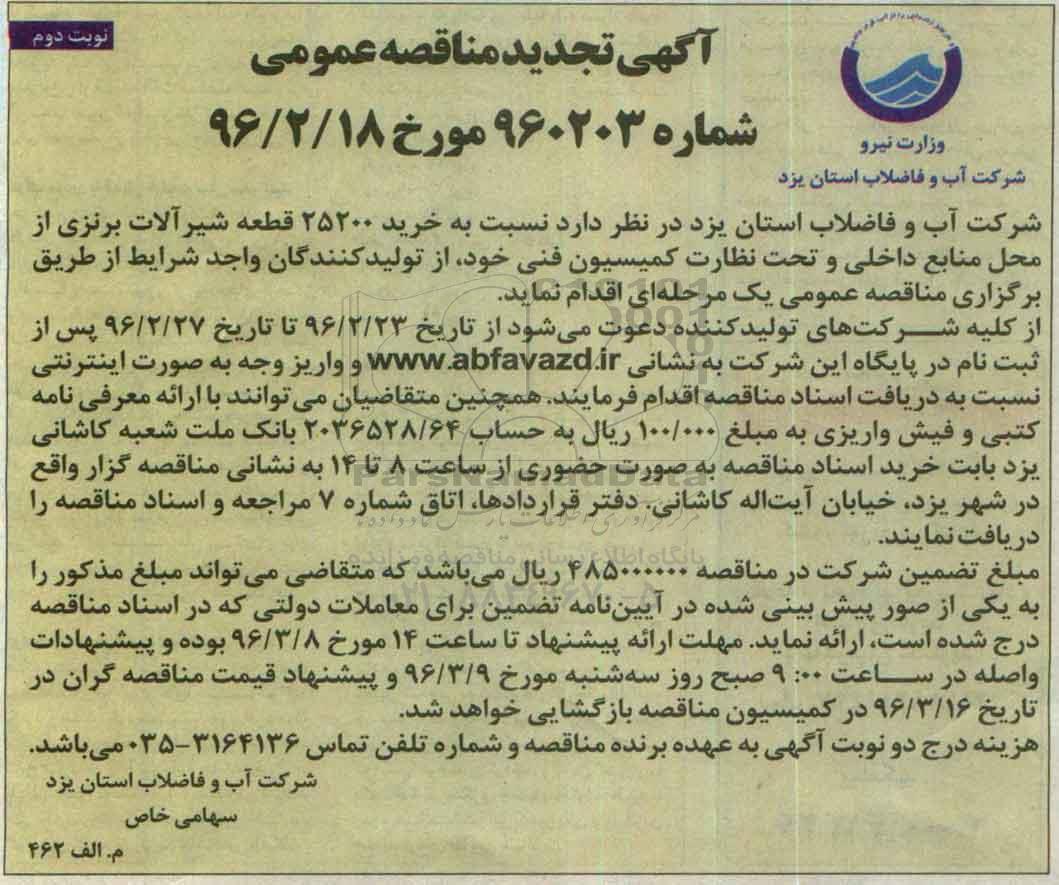 نوبت دوم
آگهی تجدید مناقصه عمومی
شماره ۹۶۰۲۰۳ مورخ ۹۶/۲/۱۸
وزارت نیرو
شرکت آب و فاضلاب استان یزد
شرکت آب و فاضلاب استان یزد در نظر دارد نسبت به خرید ۲۵۲۰۰ قطعه شیرآلات برنزی از
محل منابع داخلی و تحت نظارت کمیسیون فنی خود، از تولیدکنندگان واجد شرایط از طریق
برگزاری مناقصه عمومی یک مرحله‌ای اقدام نماید.
از کلیه شرکت‌های تولیدکننده دعوت می‌شود از تاریخ ۹۶/۲/۲۳ تا تاریخ ۹۶/۲/۲۷ پس از
ثبت نام در پایگاه این شرکت به نشانی www.abfavazd.ir و واریز وجه به صورت اینترنتی
نسبت به دریافت اسناد مناقصه اقدام فرمایند. همچنین متقاضیان می‌توانند با ارائه معرفی نامه
کتبی و فیش واریزی به مبلغ ۱۰۰/۰۰۰ ریال به حساب ۲۰۳۶۵۲۸/۶۴ بانک ملت شعبه کاشانی
یزد بابت خرید اسناد مناقصه به صورت حضوری از ساعت ۸ تا ۱۴ به نشانی مناقصه گزار واقع
در شهر یزد، خیابان آیت‌اله کاشانی. دفتر قراردادها، اتاق شماره ۷ مراجعه و اسناد مناقصه را
دریافت نمایند.
مبلغ تضمین شرکت در مناقصه ۴۸۵۰۰۰۰۰۰ ریال می‌باشد که متقاضی می‌تواند مبلغ مذکور را
به یکی از صور پیش بینی شده در آیین‌نامه تضمین برای معاملات دولتی که در اسناد مناقصه
درج شده است، ارائه نماید. مهلت ارائه پیشنهاد تا ساعت ۱۴ مورخ ۹۶/۳/۸ بوده و پیشنهادات
واصله در ساعت ۰۰: ۹ صبح روز سه‌شنبه مورخ ۹۶/۳/۹ و پیشنهاد قیمت مناقصه گران در
تاریخ ۹۶/۳/۱۶ در کمیسیون مناقصه بازگشایی خواهد شد.
هزینه درج دو نوبت آگهی به عهده برنده مناقصه و شماره تلفن تماس ۳۱۶۴۱۳۶-۰۳۵ می‌باشد.
شرکت آب و فاضلاب استان یزد
سهامی خاص
م. الف ۴۶۲
ParsNamadData
پایگاه اطلاع رسانی مناقصه و مزایده